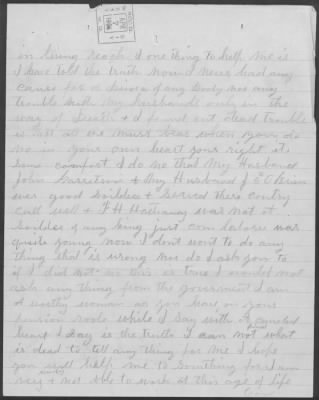 APR 2
in being reach I one thing to help me is
I have told the truth Now I never had any
cause for a divorce of any body nor any
trouble with my husbands only in the
way of Death & I do not but dead trouble
is all all we must bear when you do
no in your own heart your right it
some comfort I do me that My Husband
John Garretson & My Husband J E O Brien
wer good soilders & served there contry
call well & F H Hathaway was not a
soilder of any kind just com laborer was
quite young now I dont want to do any
thing that is wrong nor do I ask you to
if I did not this is true I would not
ask any thing from the goverment I am
a worthy woman as you have on your
pension roole while I say with a
heart I say is the truth I can not what
is dead to tell any thing for me I hope
you will help me to something for I am
very & not able to work at this age of life